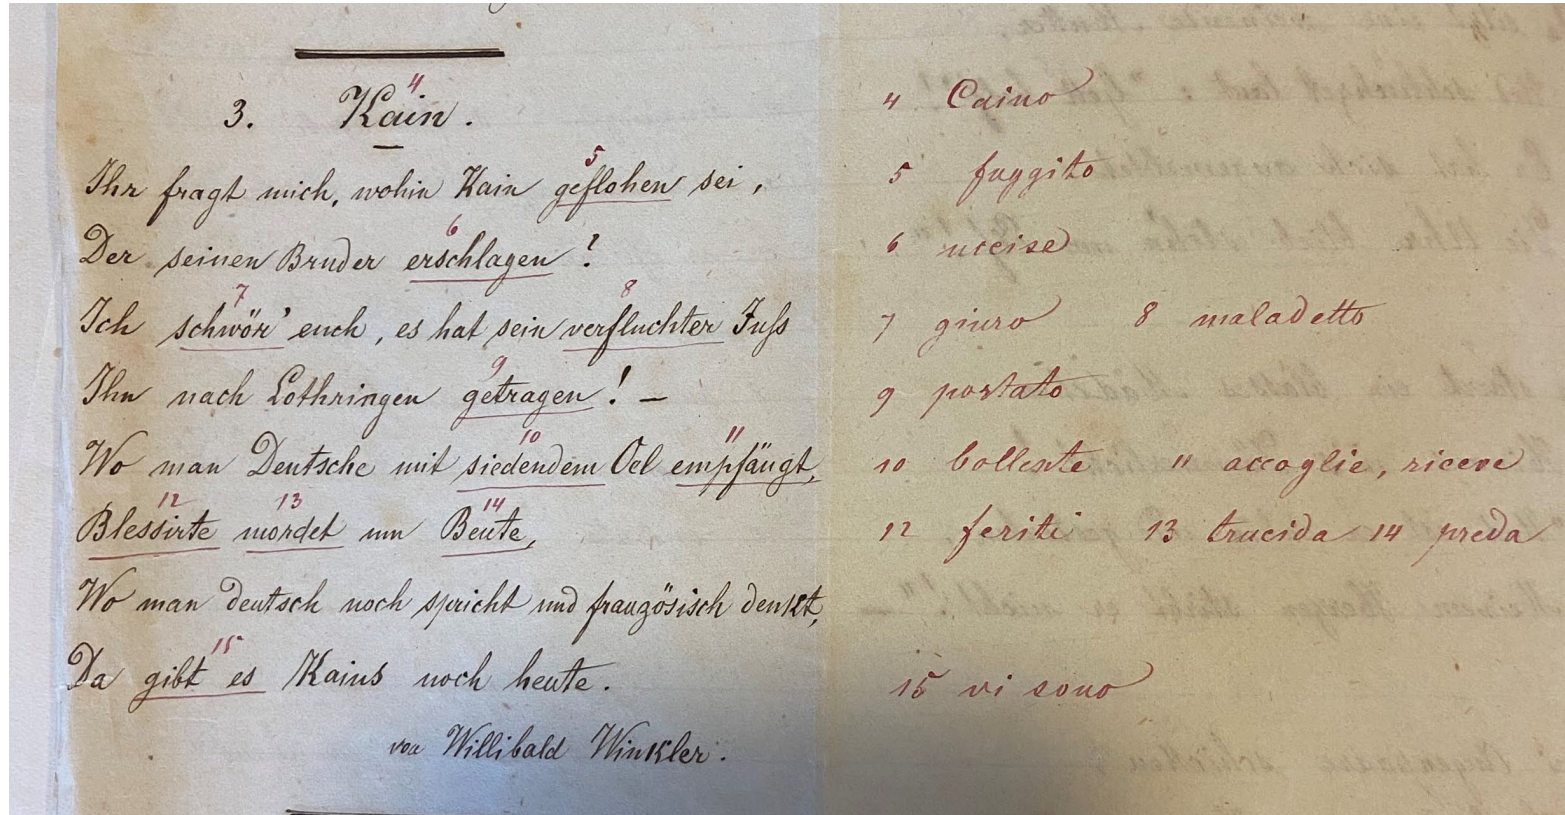 3. Kain⁴.
Ihr fragt mich, wohin Kain geflohen⁵ sei,
Der seinen Bruder erschlagen⁶?
Ich schwör'⁷ euch, es hat sein verfluchter⁸ Fuſs
Ihn nach Lothringen getragen⁹! –
Wo man Deutsche mit siedendem¹⁰ Oel empfängt¹¹,
Blessirte¹² mordet¹³ um Beute¹⁴,
Wo man deutsch noch spricht und französisch denkt,
Da gibt es¹⁵ Kains noch heute.
von Willibald Winkler.
4 Caino
5 fuggito
6 uccise
7 giuro 8 maladetto
9 portato
10 bollente 11 accoglie, riceve
12 feriti 13 trucida 14 preda
15 vi sono